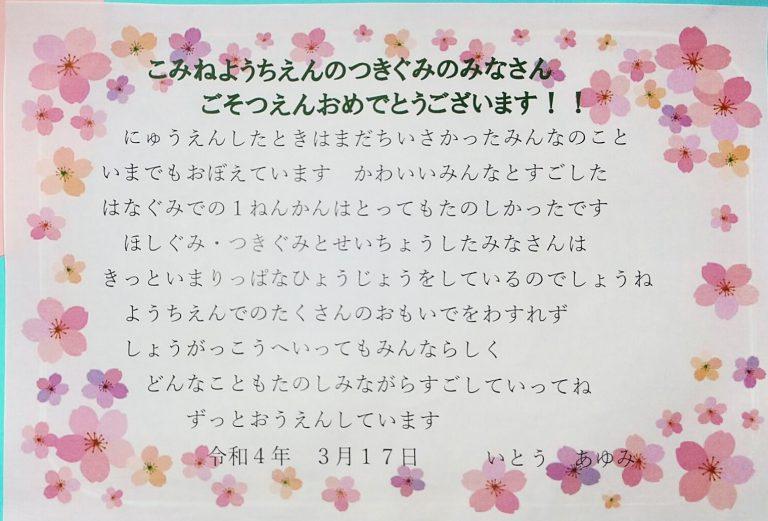 こみねようちえんのつきぐみのみなさん
ごそつえんおめでとうございます！！
にゅうえんしたときはまだちいさかったみんなのこと
いまでもおぼえています　かわいいみんなとすごした
はなぐみでの１ねんかんはとってもたのしかったです
ほしぐみ・つきぐみとせいちょうしたみなさんは
きっといまりっぱなひょうじょうをしているのでしょうね
ようちえんでのたくさんのおもいでをわすれず
しょうがっこうへいってもみんならしく
どんなこともたのしみながらすごしていってね
ずっとおうえんしています
令和４年　３月１７日　　　いとう　あゆみ